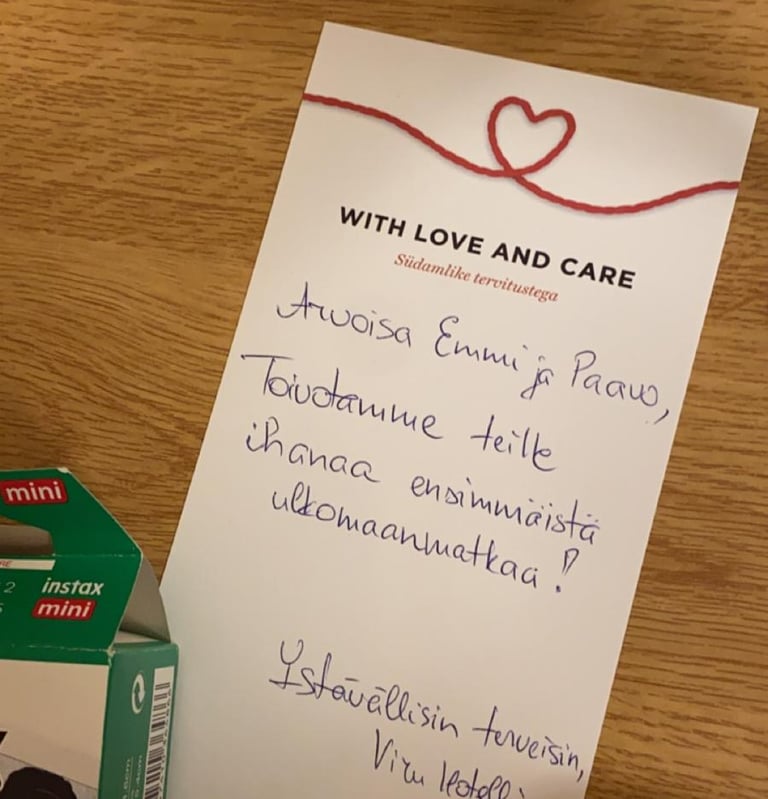 WITH LOVE AND CARE
Südamlike tervitustega
Arvoisa Emmi ja Paavo,
Toivotamme teille
ihanaa ensimmäistä
ulkomaanmatkaa!
Ystävällisin terveisin,
Viru Hotelli
mini
instax
mini